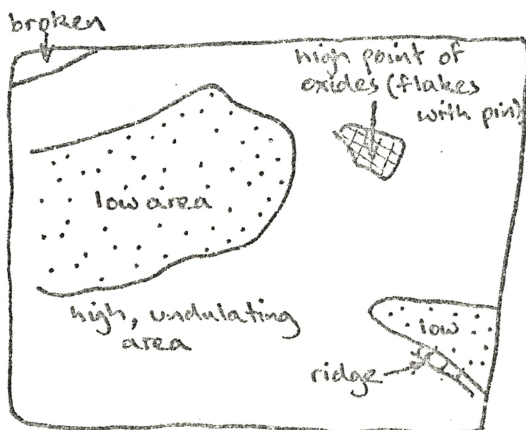 broken
high point of
oxides (flakes
with pin)
low area
high, undulating
area
low
ridge